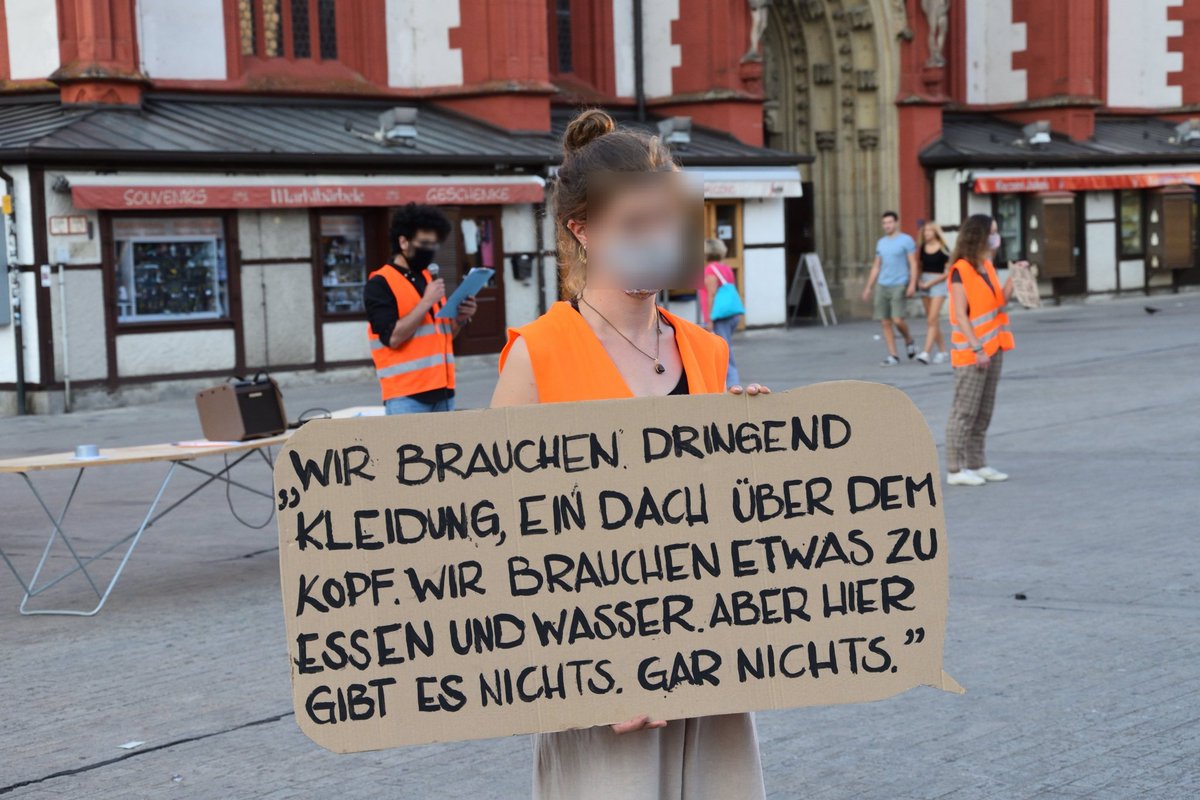 SOUVENIRS Marktstüberle GESCHENKE
„WIR BRAUCHEN DRINGEND
KLEIDUNG, EIN DACH ÜBER DEM
KOPF. WIR BRAUCHEN ETWAS ZU
ESSEN UND WASSER. ABER HIER
GIBT ES NICHTS. GAR NICHTS.”